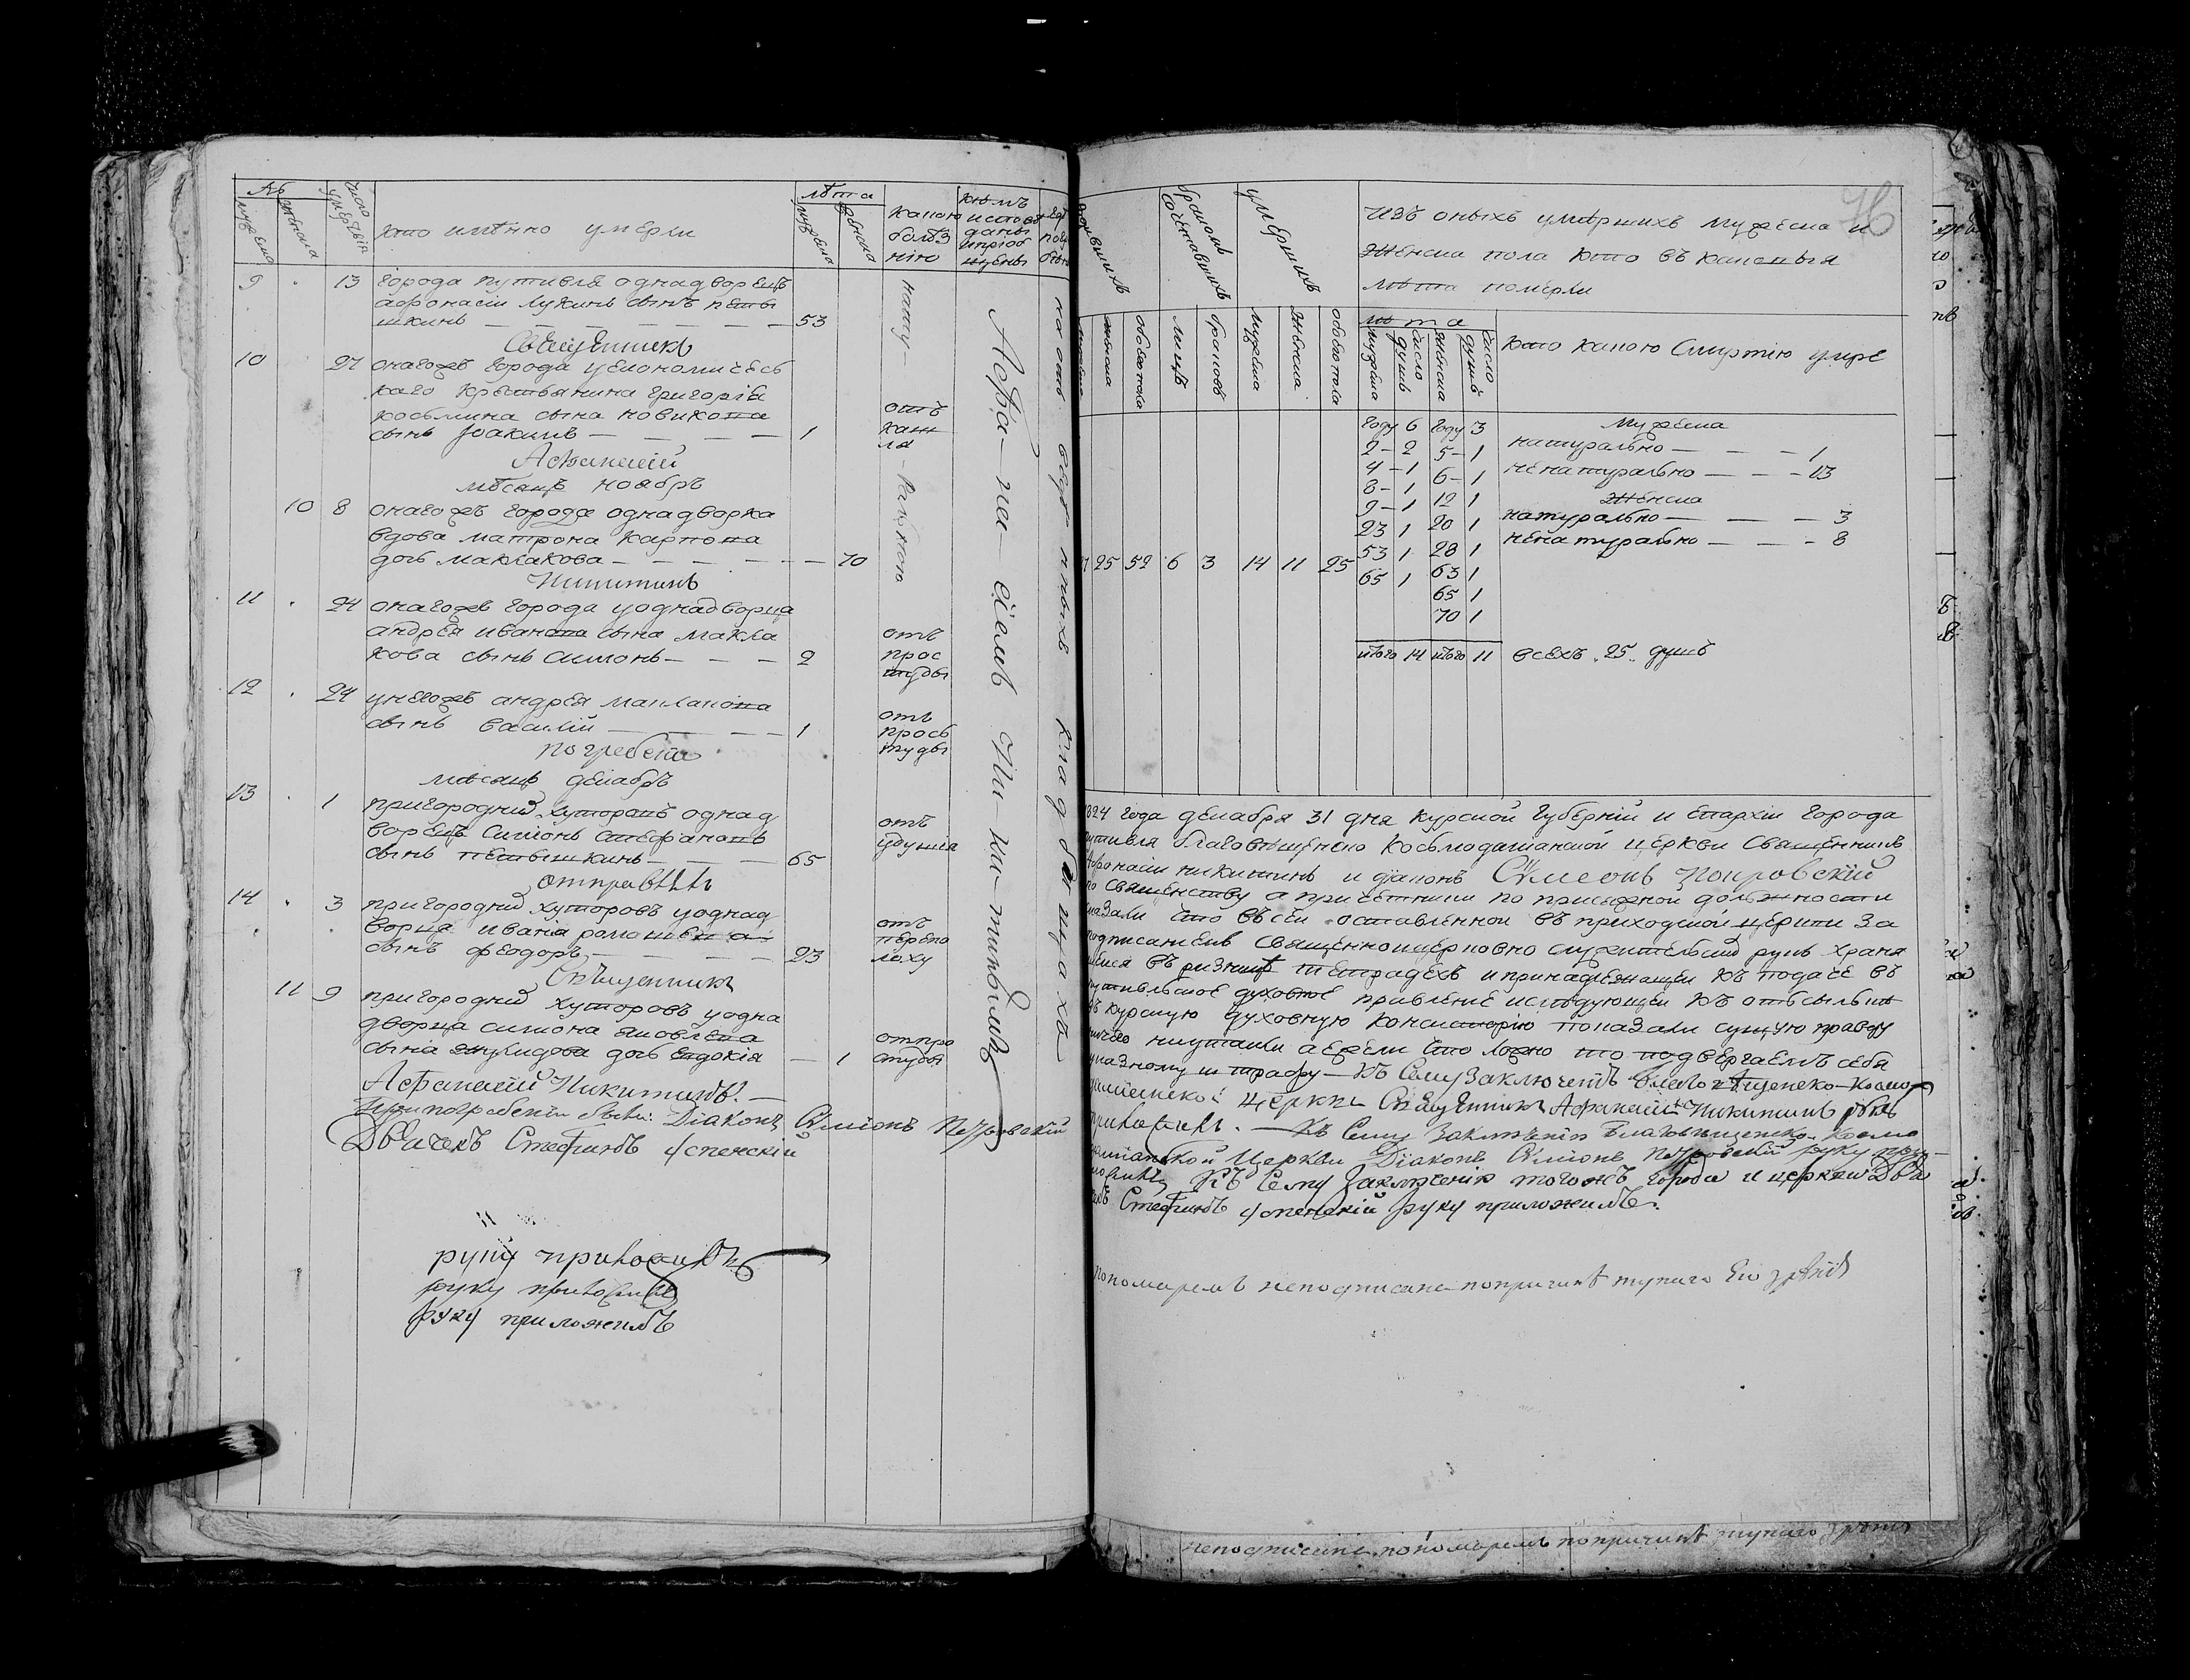 №
мужеска
женска
число умертвія
кто имѣнно умерли
лѣта
мужеска
женска
какою
болѣз
нію
кѣмъ
исповѣ
даны
и пріоб
щены
9 13 города путивля однадворецъ
афонасіи лукинъ сынъ петы
шкинъ — 53
нату
Священникъ
10 27 онагожъ города уекономичесь
каго крестьянина григорія
косьмина сына новикова
сынъ Іоакимъ — 1
отъ
каш
ля
Афанасій
мѣсяцъ ноябръ
10 8 онагожъ города однадворка
вдова матрона карпова
дочь маклакова — 70
Никитинъ
11 24 онагожъ города уоднадворца
андрея иванова сына макла
кова сынъ симонъ — 2
отъ
прос
туды
12 24 унегожъ андрея маклакова
сынъ василій — 1
отъ
прось
туды
погребеніе
мѣсяцъ декабръ
13 1 пригородних хуторовъ однад
ворецъ симонъ стефановъ
сынъ петышкинъ — 65
отъ
удушia
отправлялъ
14 3 пригородних хуторовъ уоднад
ворца ивана
сынъ феодоръ — 23
отъ
перепо
лоху
Священникъ
11 9 пригородних хуторовъ уодна
дворца симона яковлева
сына дочь евдокія — 1
отпро
студы
Афанасій Никитинъ. —
при погребеніи были: Діаконъ Симіонъ Покровскій
Дьячекъ Стефанъ Успенскій
руку приложилъ
руку приложилъ
руку приложилъ
Афа-на сіемъ Ни ки-тинымъ
на отъ веде нныхъ кладбищахъ
бракомъ сочетавшихъ
умершихъ
изъ оныхъ умѣршихъ мужеска и
женска пола кто въ каковыя
лѣта померли
76
женска
обоего пола
лицъ
браковъ
мужеска
женска
обоего пола
лѣта
мужеска
число душъ
женска
число душъ
кто какою смертію умре
25 52 6 3 14 11 25
году 6 году 3
2 – 2 5 – 1
4 – 1 6 – 1
8 – 1 12 1
9 – 1 20 1
23 1 28 1
53 1 63 1
65 1 65 1
70 1
итого 14 итого 11 всехъ 25 душъ
мужеска
натурально — 1
ненатурально — 13
женска
натурально — 3
ненатурально — 8
1824 года декабря 31 дня курской губерніи и епархіи города
путивля благовѣщенско косьмодаміанской церкви священникъ
Афонасіи никитинъ и діаконъ Симеонъ Покровскій
по священству а причетники по присяжной должности
сказали что въ сеи оставленной въ приходской церкви за
подписаніемъ священноцерковно служительских рукъ храня
щеися въ ризницѣ тетрадехъ и принадлежащеи къ подаче въ
путивльское духовное правленіе и следующеи къ отъсылькѣ
въ курскую духовную консисторію показали сущую правду
ничего неутаили а ежели что ложно то подвергаемъ себя
указному штрафу — Къ сему заключенію благовѣщенско-космо
даміанской церкви Священникъ Афанасій Никитинъ руку
приложилъ. — Къ сему заключенію Благовѣщенско-космо
даміанской церкви Діаконъ Симіонъ Покровскій руку при—
ложилъ Къ сему заключенію тогожъ города и церкви Дья
чекъ Стефанъ Успенскій руку приложилъ.
Пономаремъ неподписана попричинѣ тупаго его зрѣнія
неподписана пономаремъ попричинѣ тупаго зрѣнія